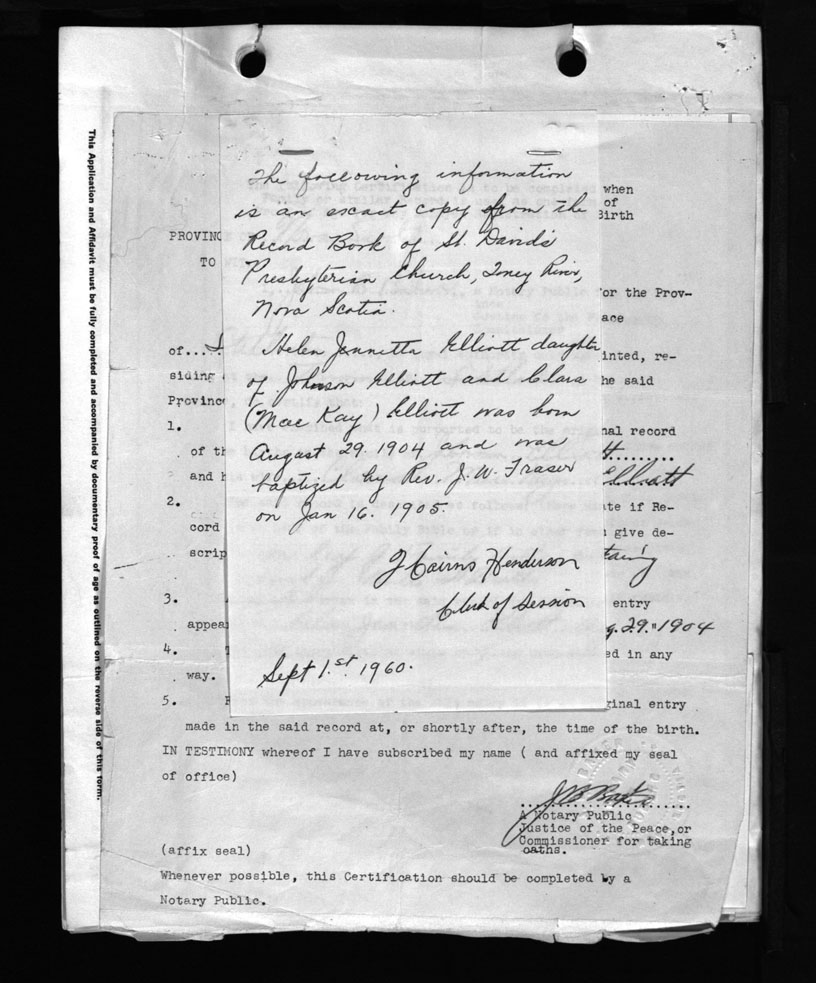 This Application and Affidavit must be fully completed and accompanied by documentary proof of age as outlined on the reverse side of this form.
The following information
is an excact copy from the
Record Book of St. David's
Presbyterian Church, Toney River,
Nova Scotia.
Helen Jennetta Elliott daughter
of Johnson Elliott and Clara
(Mac Kay) Elliott was born
August 29. 1904 and was
baptized by Rev. J. W. Fraser
on Jan 16. 1905.
J Cairns Henderson
Clerk of Session
Sept 1.st 1960.
when
of
Birth
PROVINC
TO
or the Prov-
ace
of....
inted, re-
siding
he said
Province
1.
nal record
of th
and h
Elliott
2.
te if Re-
cord
give de-
scrip
3.
entry
appea
g. 29. "1904
4.
ed in any
way.
5.
ginal entry
made in the said record at, or shortly after, the time of the birth.
IN TESTIMONY whereof I have subscribed my name ( and affixed my seal
of office)
A Notary Public
Justice of the Peace,or
Commissioner for taking
oaths.
(affix seal)
Whenever possible, this Certification should be completed by a
Notary Public.